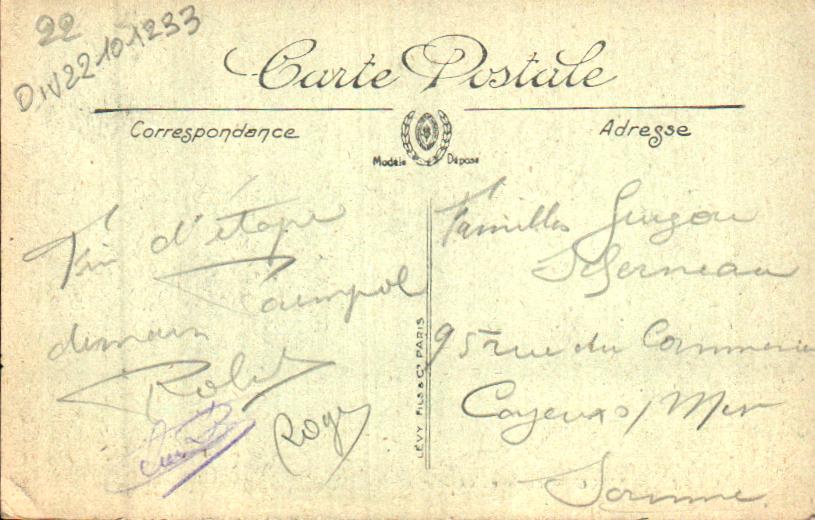 22
DIV22101233
Carte Postale
Correspondance
Adresse
Modèle Déposé
Fin d'étape
Paimpol
demain
Robert
Roger
LÉVY FILS & Cie PARIS
Familles
95 rue du Commerce
Cayeux s/ Mer
Somme